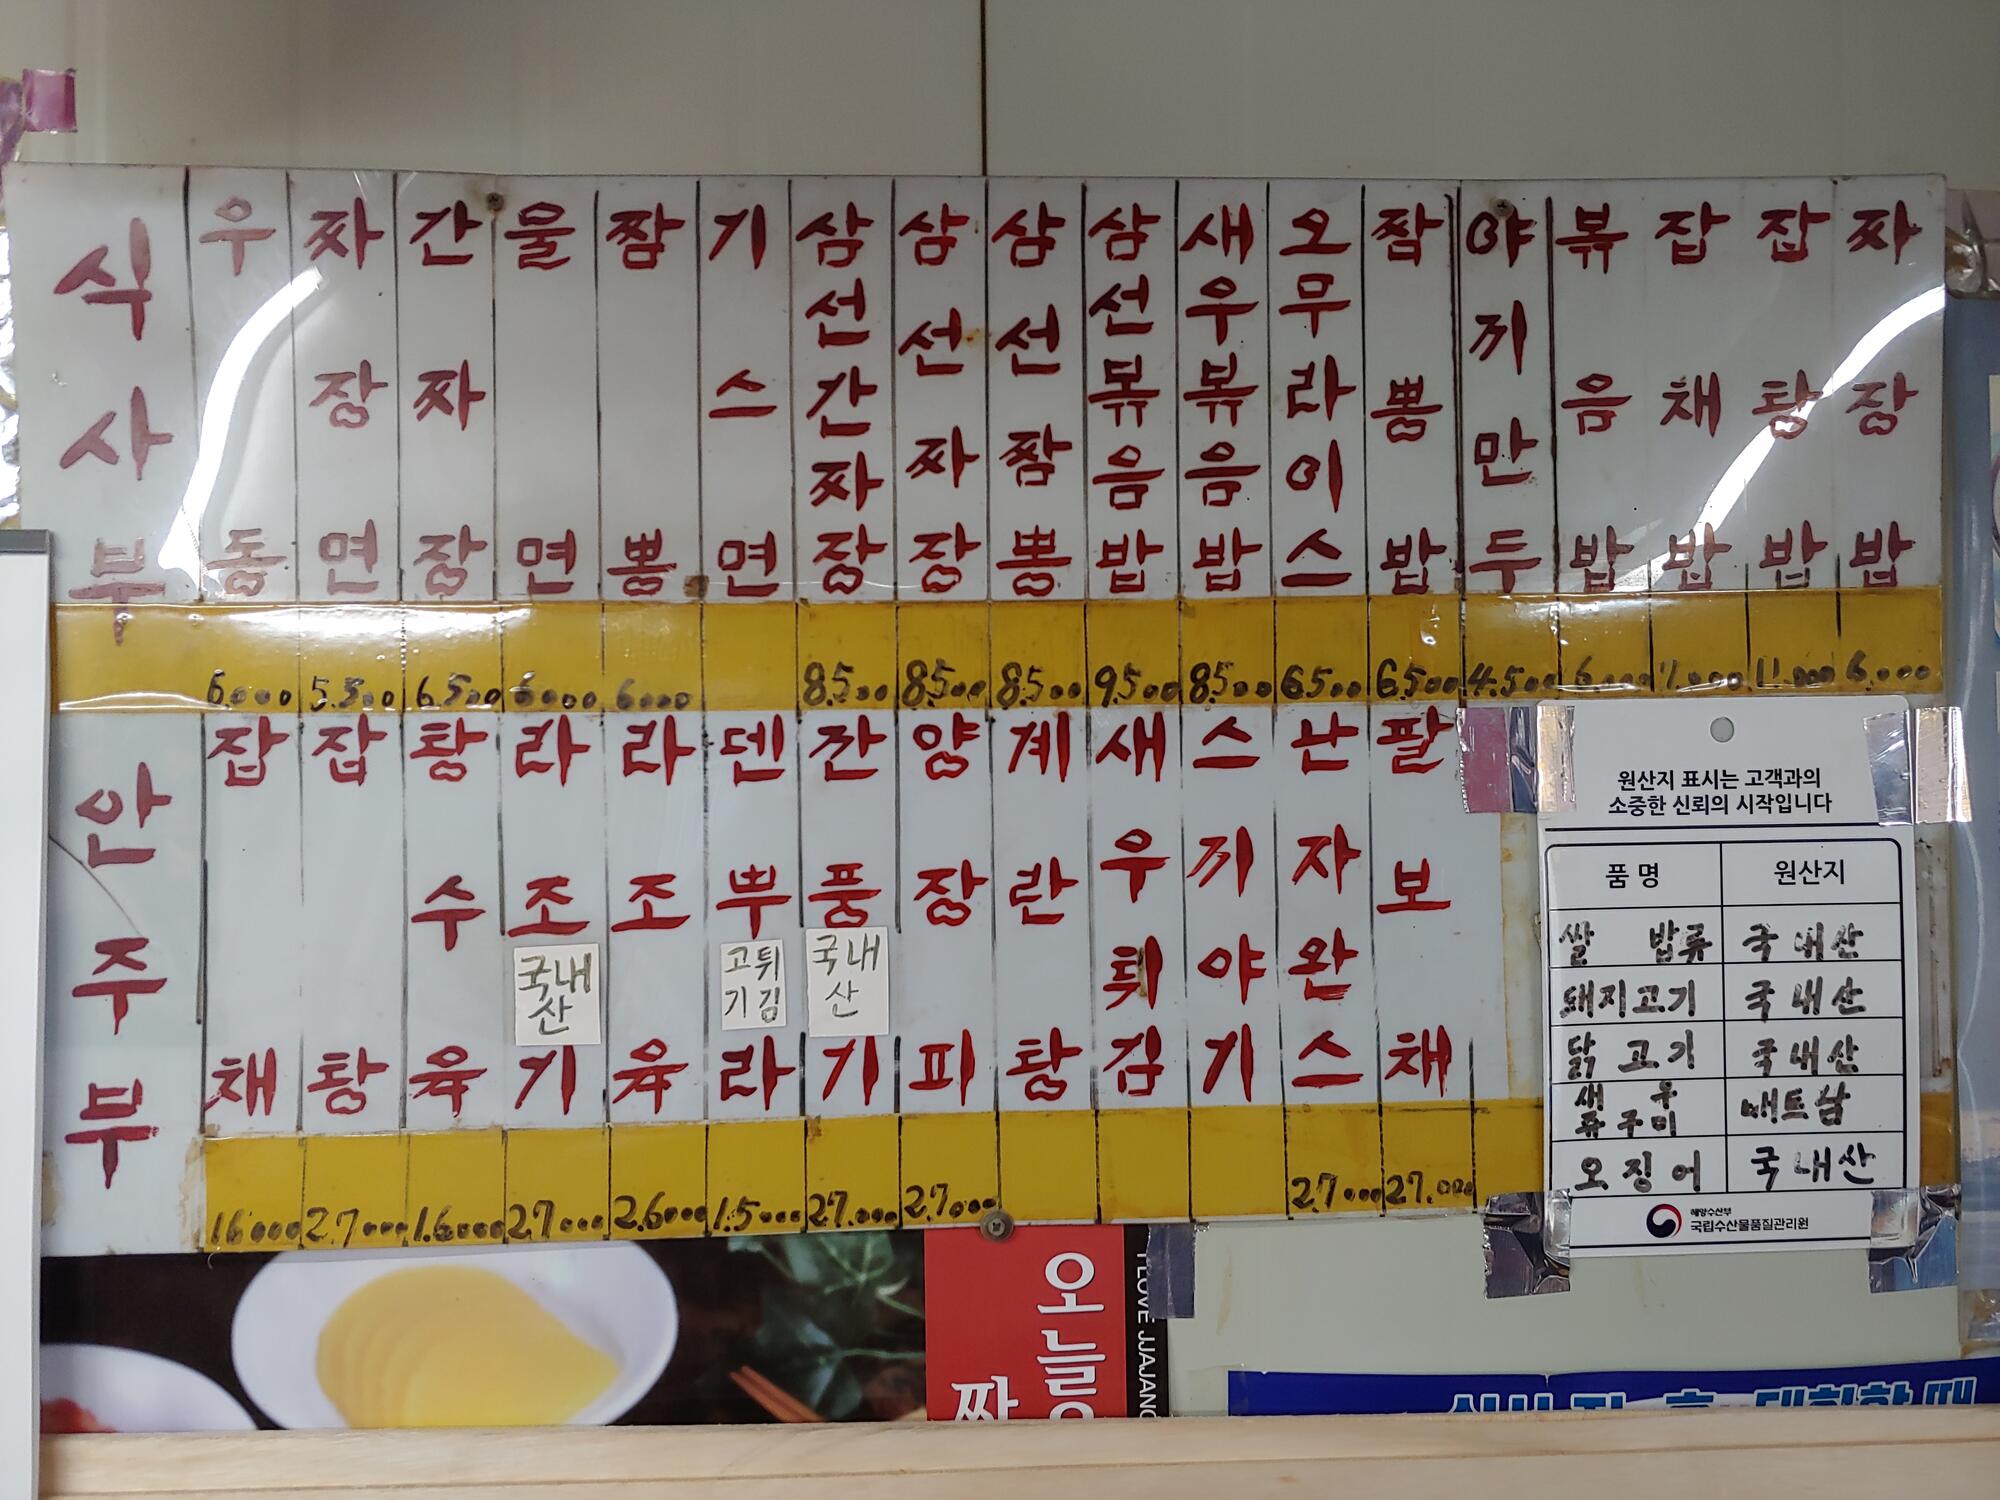 식사부
우동 6000
짜장면 5.500
간짜장 6.500
울면 6000
짬뽕 6000
기스면
삼선간짜장 8.500
삼선짜장 8.500
삼선짬뽕 8.500
삼선볶음밥 9.500
새우볶음밥 8.500
오무라이스 6.500
짬뽕밥 6.500
야끼만두 4.500
볶음밥 6.000
잡채밥 7.000
잡탕밥 11.000
짜장밥 6.000
안주부
잡채 16000
잡탕 27.000
탕수육 16000
라조기 국내산 27.000
라조육 26.000
덴뿌라 고기튀김 15.000
깐풍기 국내산 27.000
양장피 27.000
계란탕
새우튀김
스끼야기
난자완스 27.000
팔보채 27.000
원산지 표시는 고객과의
소중한 신뢰의 시작입니다
품명 원산지
쌀 밥류 국내산
돼지고기 국내산
닭고기 국내산
새우
쭈구미 베트남
오징어 국내산
해양수산부
국립수산물품질관리원
오늘
짜
I LOVE JJAJANG